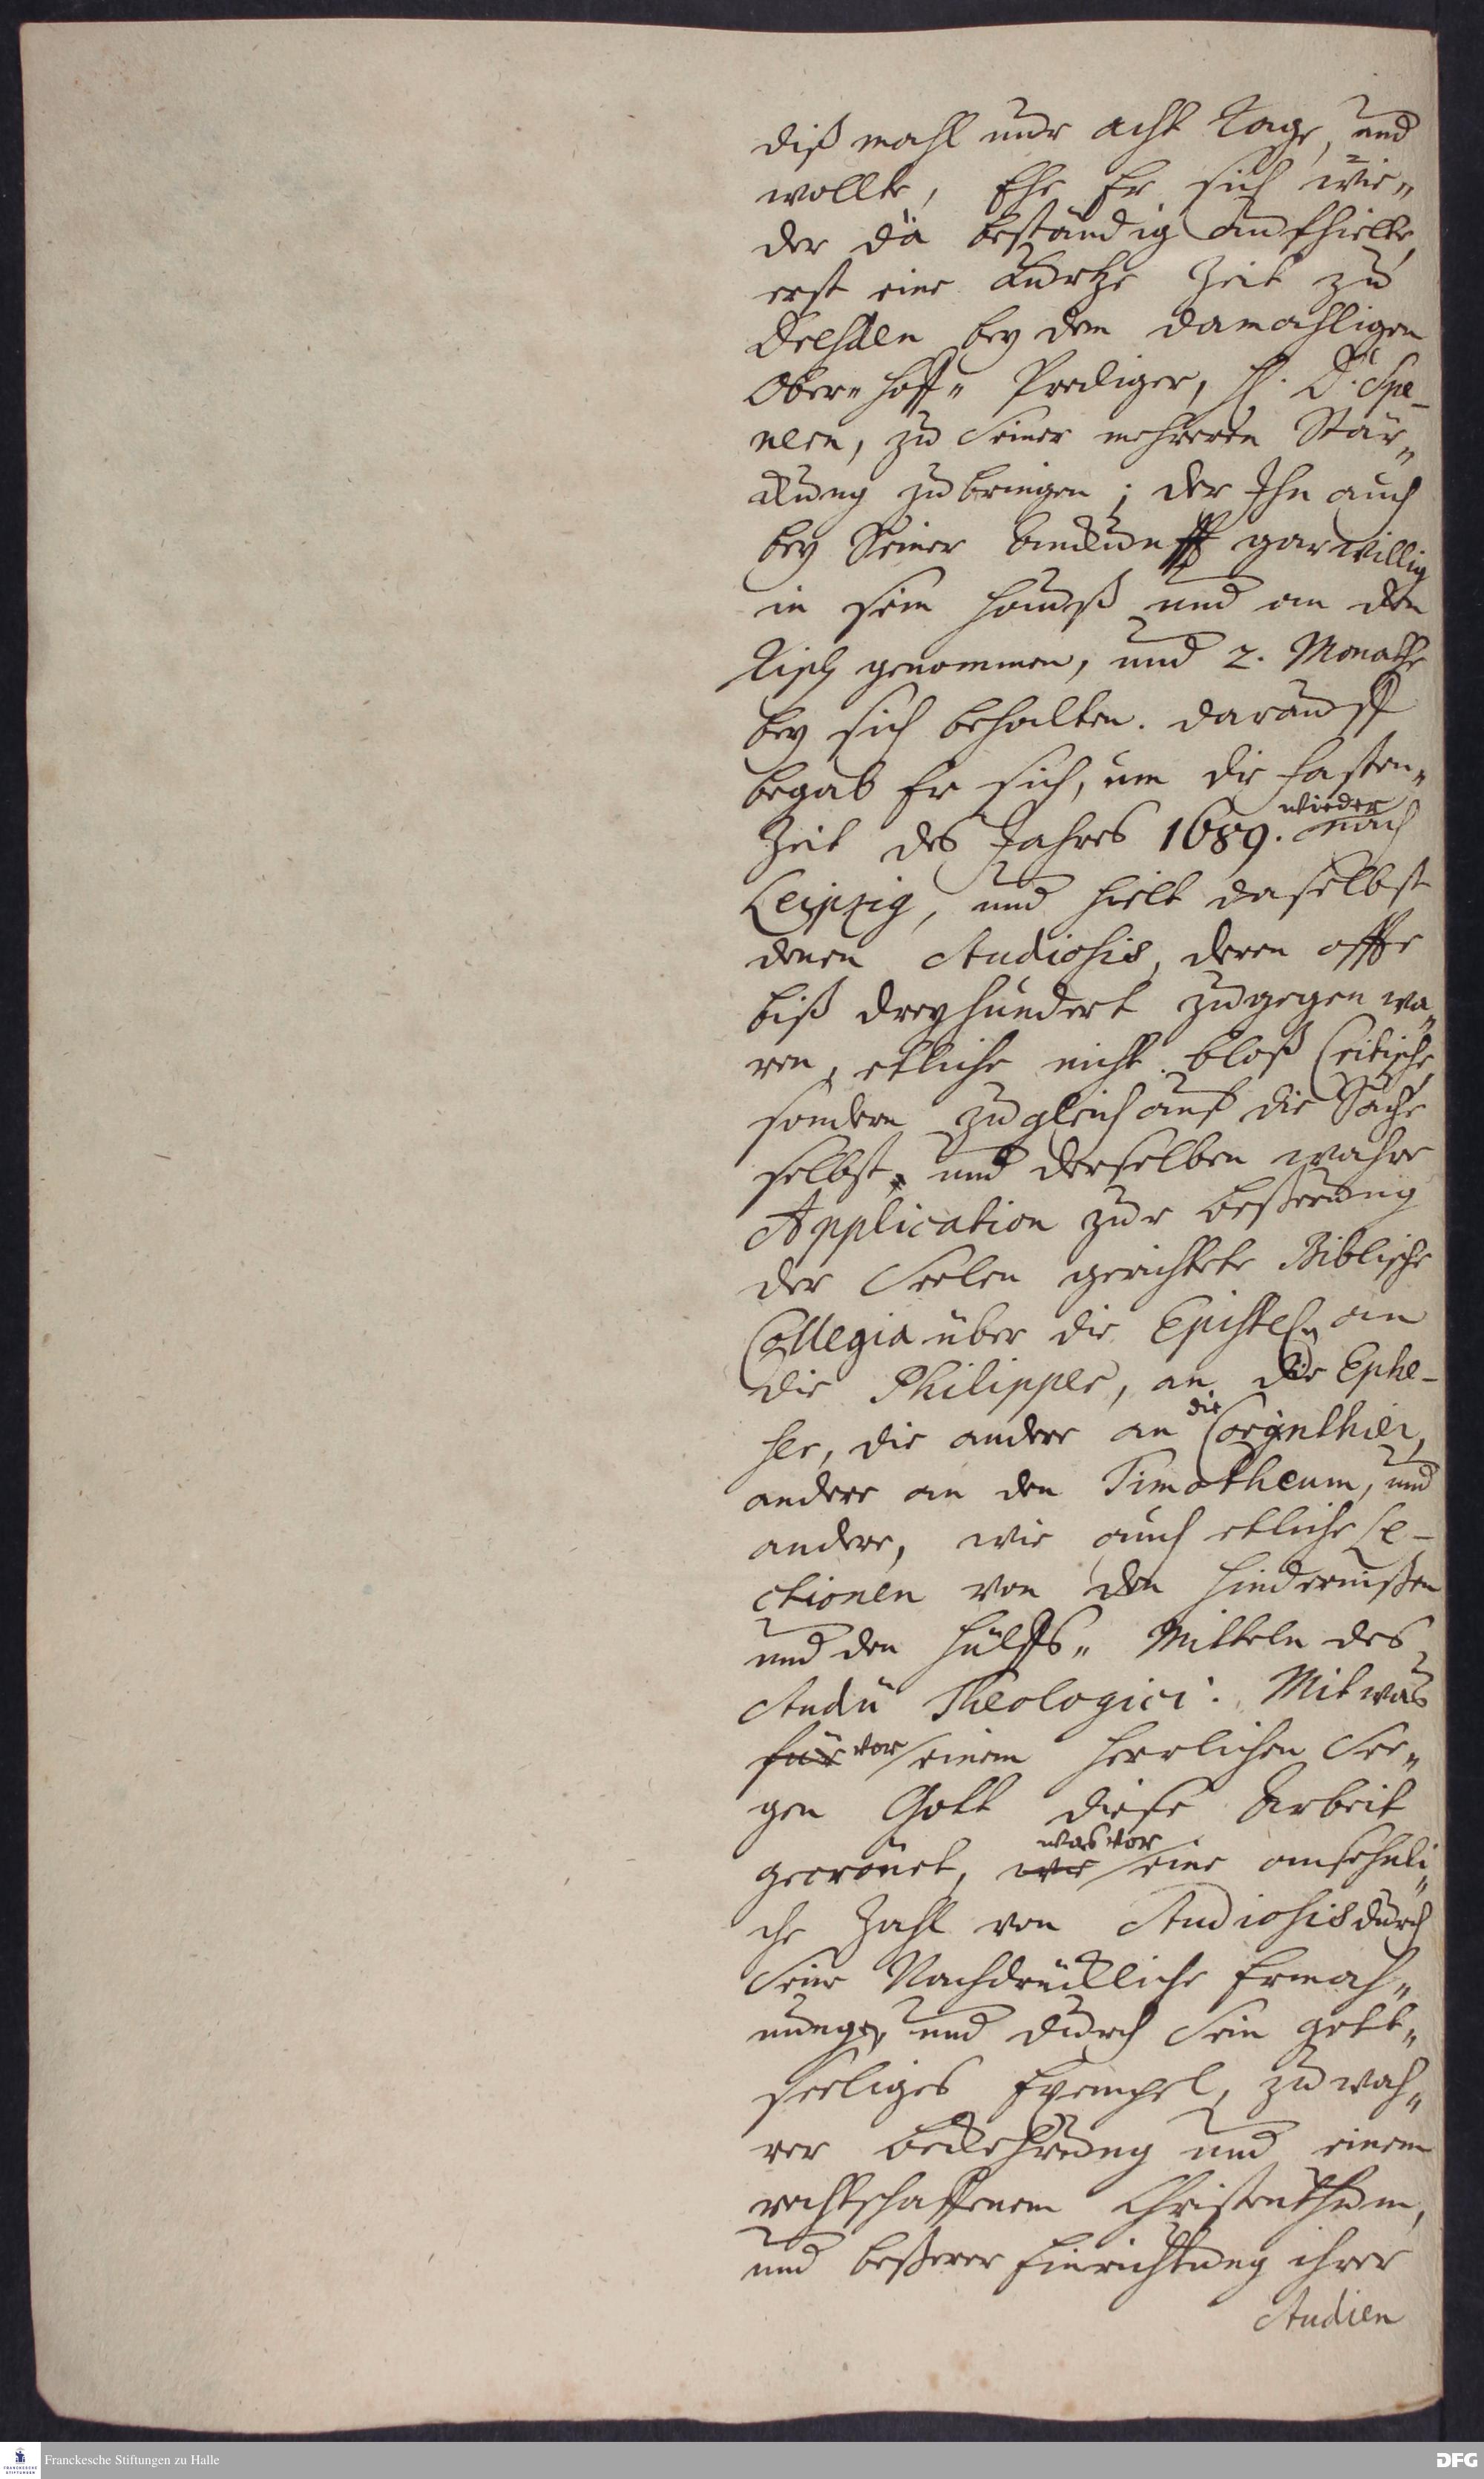 diß mahl nur acht Tage, und
wollte, Ehe Er sich wie„
der da beständig aufhielte,
erst eine kurtze Zeit zu
Dreßden bey dem damahligen
Ober„ Hoff„ Prediger, H. D. Spe-
nern, zu Seiner mehreren Stär„
ckung zubringen; der Ihn auch
bey Seiner Ankunfft gar willig
in sein Hauß und an den
Tisch genommen, und 2. Monathe
bey sich behalten. Darauff
begab Er sich, um die Fasten„
Zeit des Jahres 1689. wieder nach
Leipzig, und hielt daselbst
denen Studiosis, deren offte
biß dreyhundert zugegen wa„
ren, etliche nicht bloß Critische,
sondern zugleich auf die Sache
selbst, und derselben wahre
Application zur Beßerung
der Seelen gerichtete Biblische
Collegia über die Episteln an
die Philipper, an die Ephe-
ser, die andere an die Corynthier,
andere an den Timotheum, und
andere, wie auch etliche Le-
ctionen von den Hindernißen
und den Hülffs„ Mitteln des
Studii Theologici. Mit was
für vor einem herrlichen See„
gen Gott diese Arbeit
gecrönet, wie was vor eine ansehnli„
che Zahl von Studiosis durch
Seine Nachdrückliche Ermah„
nungen, und durch Sein gott„
seeliges Exempel, zu wah„
rer Bekehrung und einem
rechtschaffenem Christenthum,
und beßerer Einrichtung ihrer
Studien
Franckesche Stiftungen zu Halle
DFG